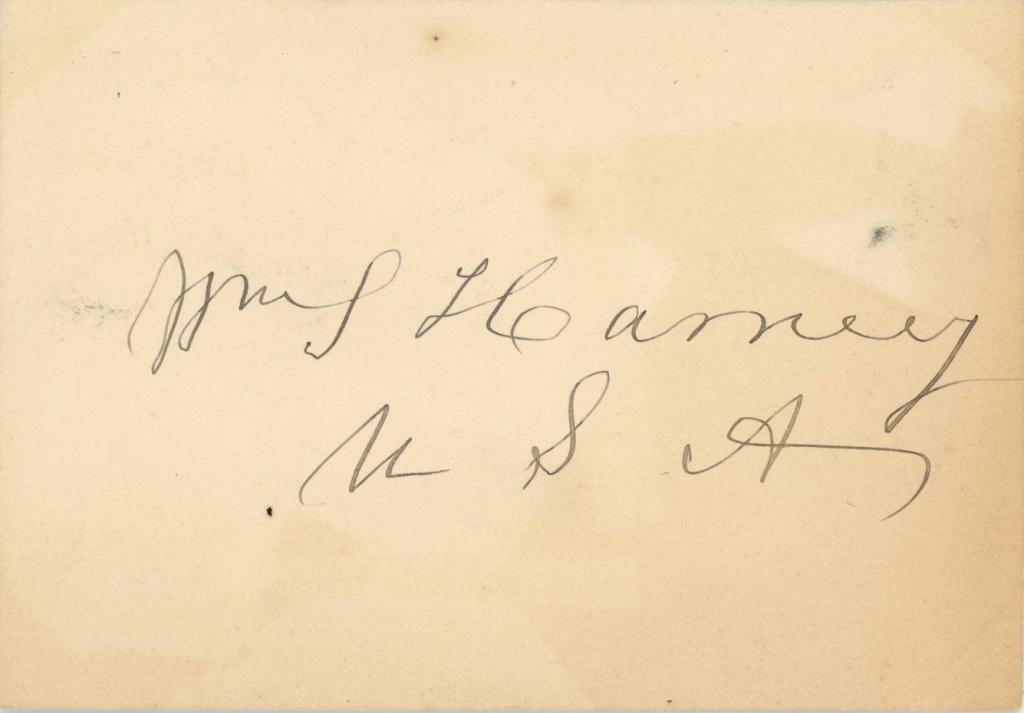 Wm S Harney
U S A